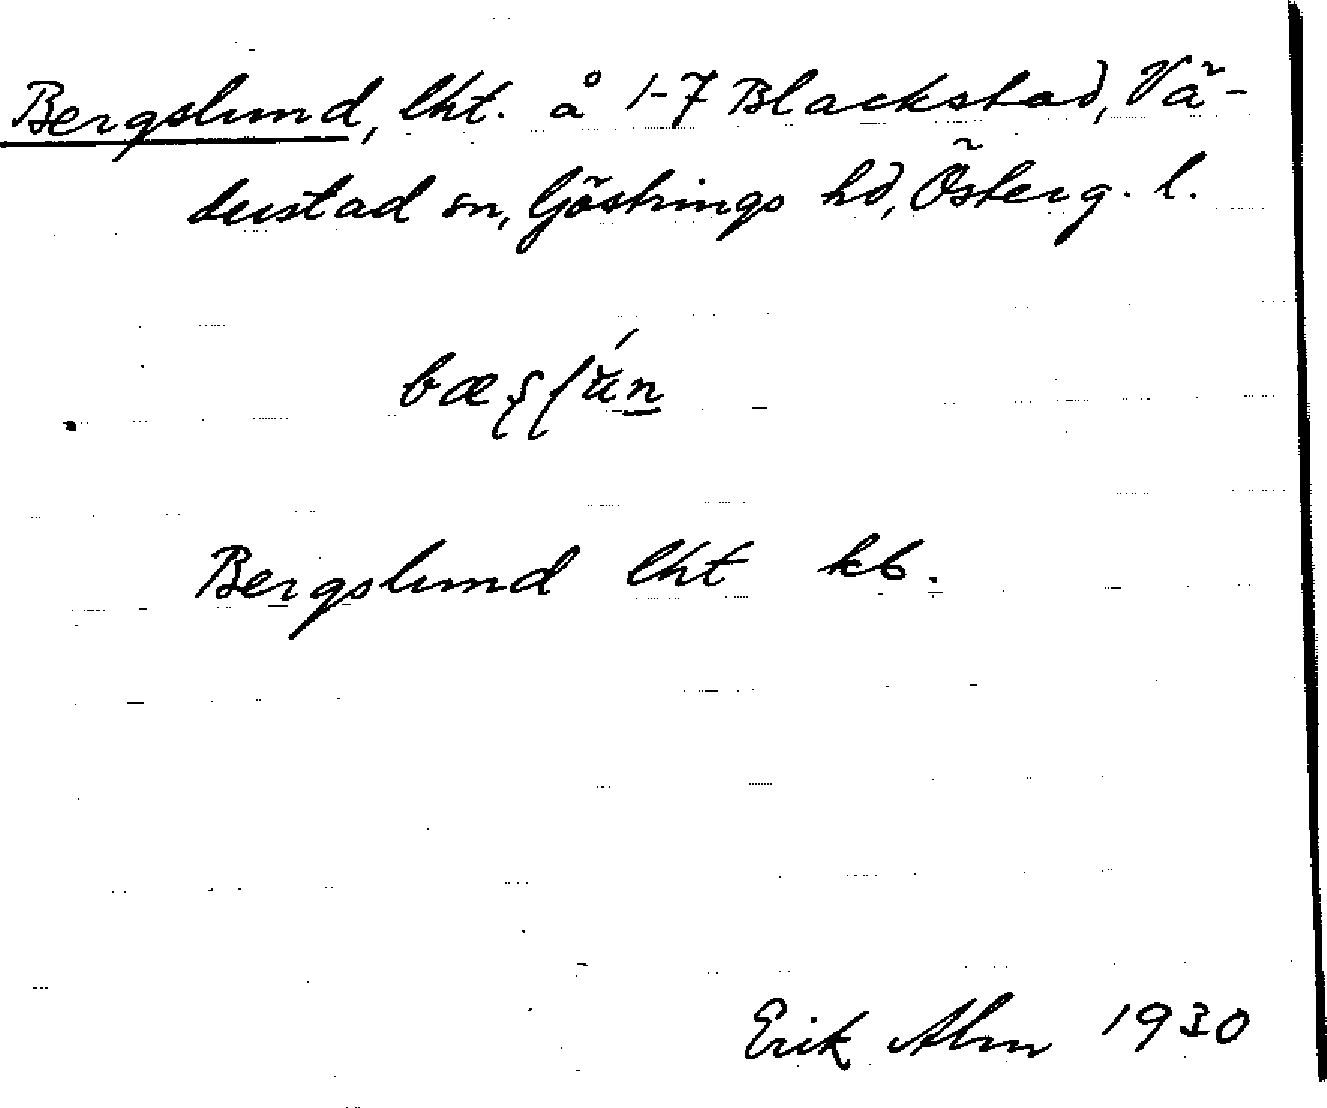 Bergslund, lht. å 1-7 Blackstad, Vä-
derstad sn, Göstrings hd, Österg. l.
Bergslund lht kb.
Erik Alm 1930